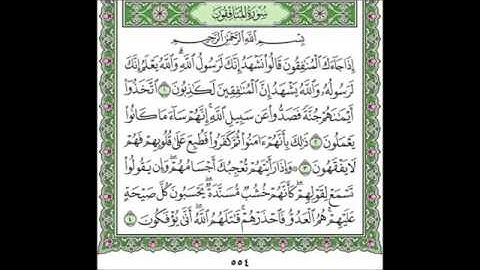 سُورَةُ المُنَافِقُونَ
بِسْمِ اللَّهِ الرَّحْمَٰنِ الرَّحِيمِ
إِذَا جَاءَكَ الْمُنَافِقُونَ قَالُوا نَشْهَدُ إِنَّكَ لَرَسُولُ اللَّهِ وَاللَّهُ يَعْلَمُ إِنَّكَ
لَرَسُولُهُ وَاللَّهُ يَشْهَدُ إِنَّ الْمُنَافِقِينَ لَكَاذِبُونَ ١ اتَّخَذُوا
أَيْمَانَهُمْ جُنَّةً فَصَدُّوا عَن سَبِيلِ اللَّهِ إِنَّهُمْ سَاءَ مَا كَانُوا
يَعْمَلُونَ ٢ ذَٰلِكَ بِأَنَّهُمْ آمَنُوا ثُمَّ كَفَرُوا فَطُبِعَ عَلَىٰ قُلُوبِهِمْ فَهُمْ
لَا يَفْقَهُونَ ٣ وَإِذَا رَأَيْتَهُمْ تُعْجِبُكَ أَجْسَامُهُمْ وَإِن يَقُولُوا
تَسْمَعْ لِقَوْلِهِمْ كَأَنَّهُمْ خُشُبٌ مُّسَنَّدَةٌ يَحْسَبُونَ كُلَّ صَيْحَةٍ
عَلَيْهِمْ هُمُ الْعَدُوُّ فَاحْذَرْهُمْ قَاتَلَهُمُ اللَّهُ أَنَّىٰ يُؤْفَكُونَ ٤
٥٥٤